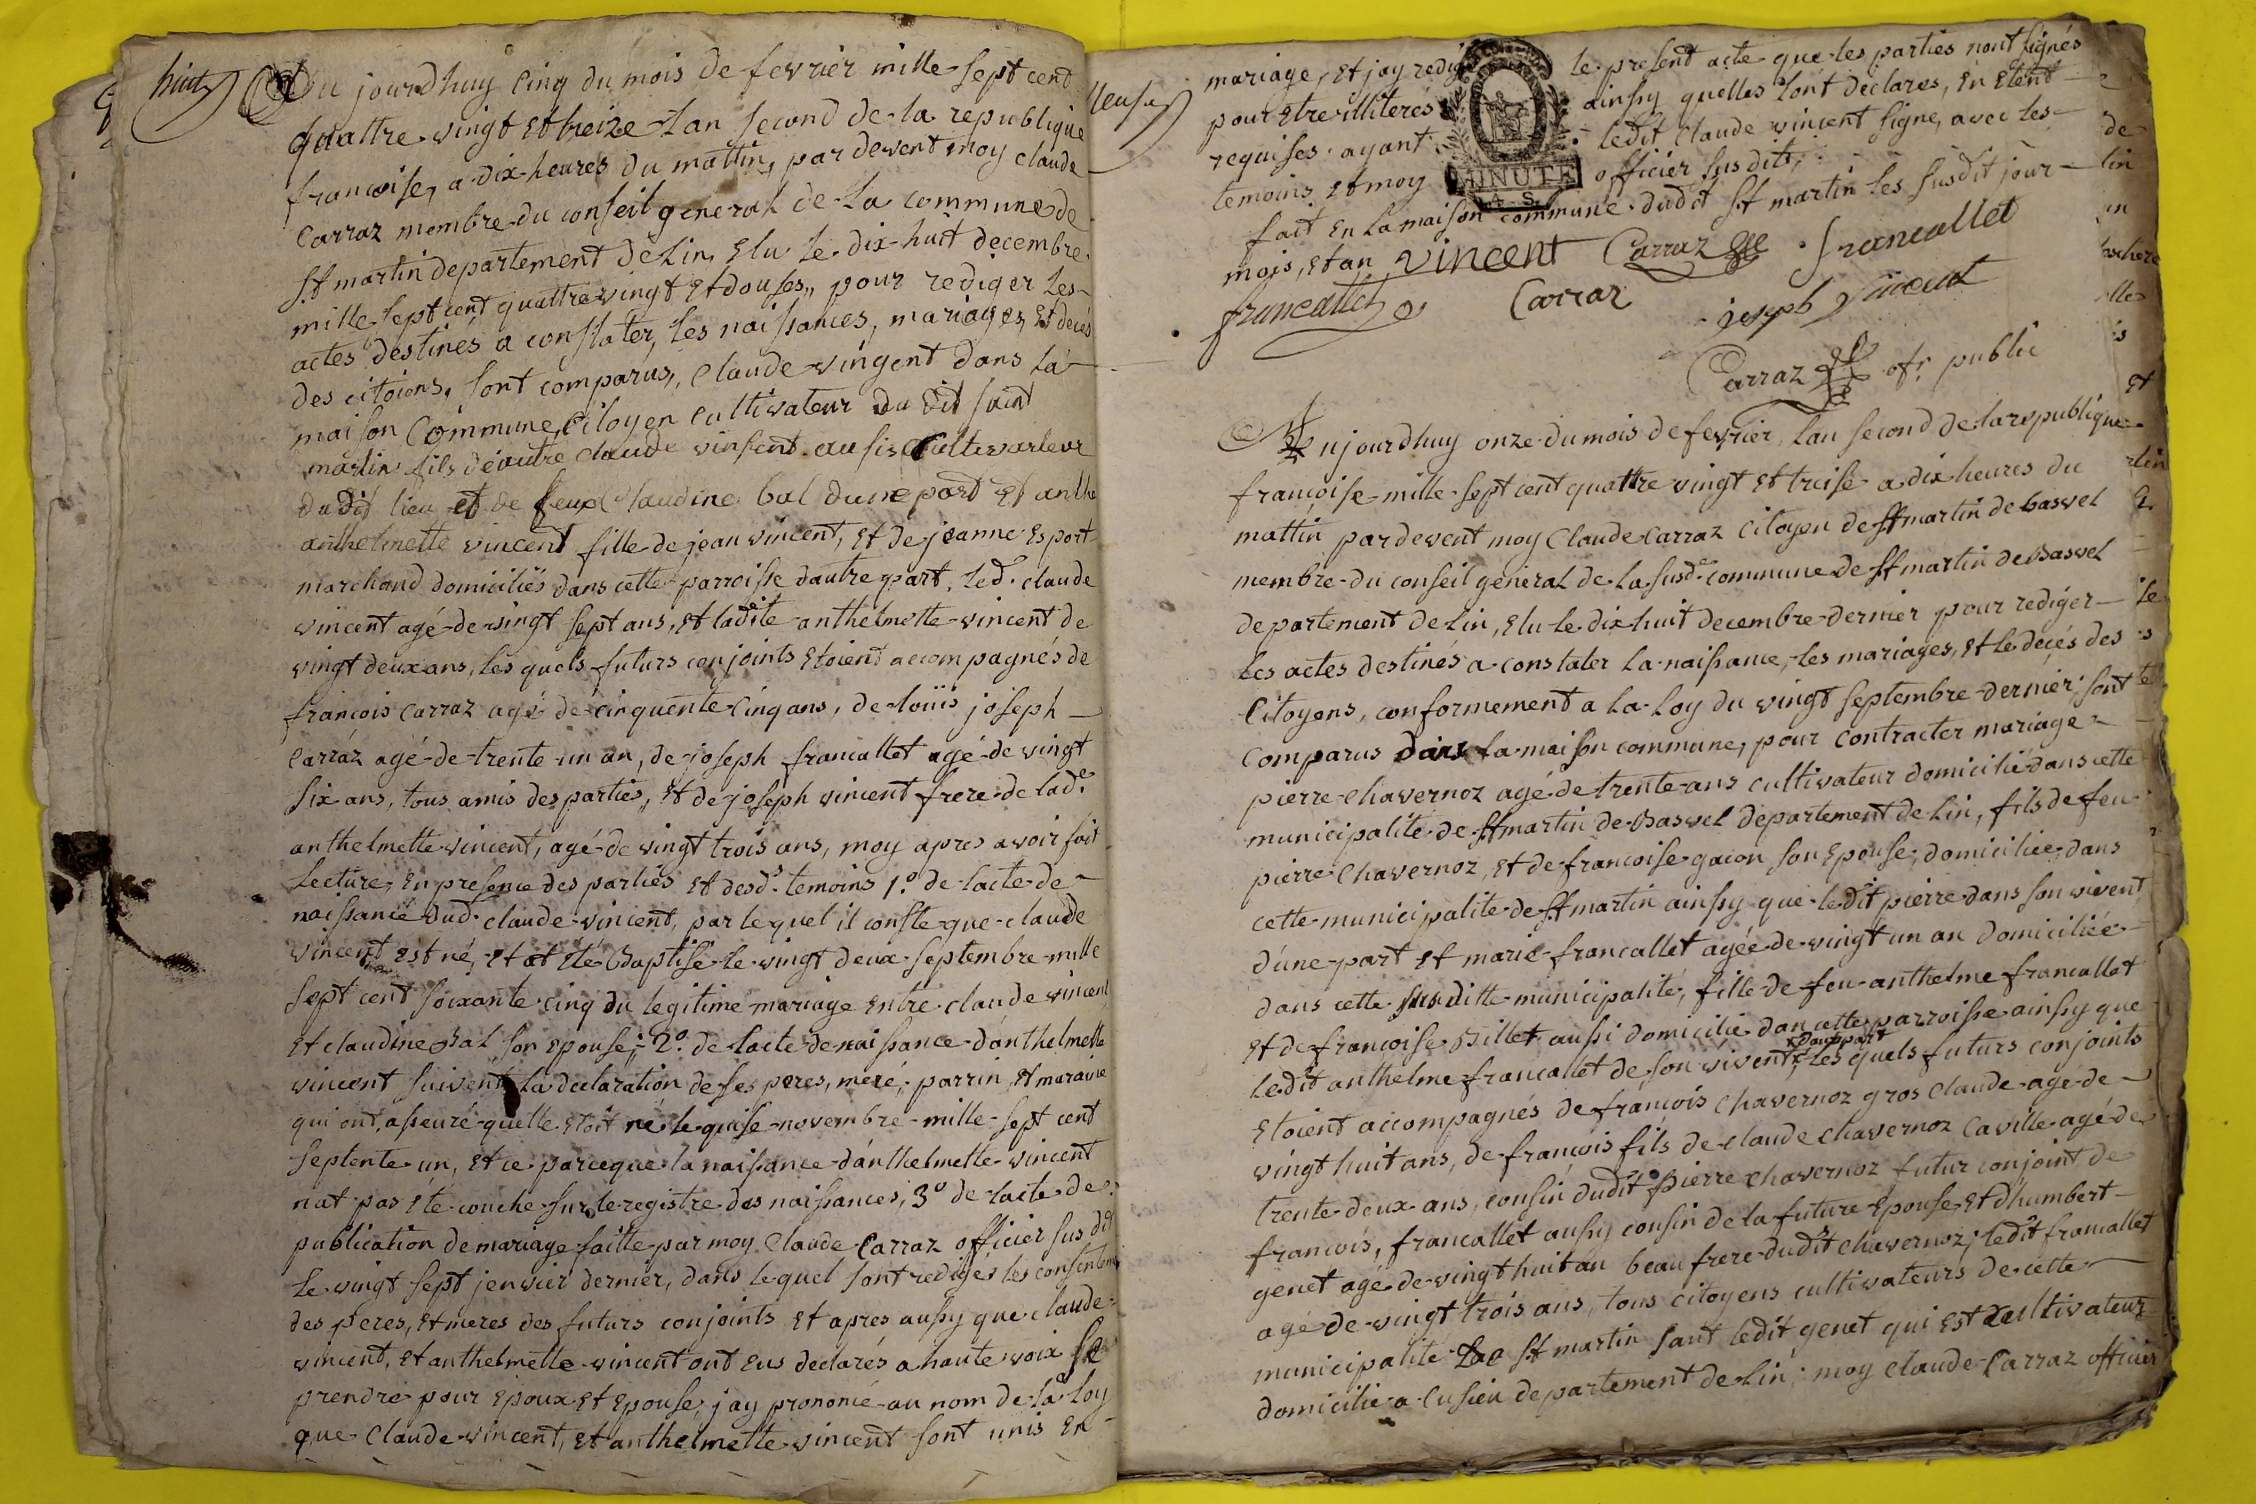 huit
Au jourdhuy cinq du mois de fevrier mille sept cent
quattre vingt et treize lan second de la republique
francoise, a dix heures du mattin, par devent moy claude
Carraz membre du conseil general de la commune de
St martin departement de Lin, elu le dix-huit decembre
mille sept cent quattre vingt et douses,, pour rediger les
actes destinés a constater, les naissances, mariages, et decés
des citoiens, sont comparus, claude vingent dans la
maison commune, citoyen cultivateur du dit saint
martin fils deautre claude vinsent ausis cultivarleur
du dit lieu et de feux claudine bal dune part et anthe
anthelmette vincent fille de jean vincent, et de jeanne esport
marchand domiciliés dans cette parroisse dautre part. led. claude
vincent agé de vingt sept ans, et ladite anthelmette vincent de
vingt deux ans, les quels futurs conjoints etoient accompagnés de
francois carraz agé de cinquente cinq ans, de loüis joseph
Carraz agé de trente un an, de joseph francallet agé de vingt
six ans, tous amis des parties, et de joseph vincent frere de lad.e
anthelmette vincent, agé de vingt trois ans, moy apres avoir fait
lecture, en presence des parties et desd.s temoins 1.o de lacte de
naissance dud. claude vincent, par lequel il conste que claude
vincent est né, et at eté baptisé le vingt deux septembre mille
sept cent soixante cinq du legitime mariage entre claude vincent
et claudine bal son epouse, 2.o de lacte de naissance danthelmette
vincent suivent la declaration de ses peres, mere, parrin et maraine
qui ont, asseuré quelle etoit né le quise novembre mille sept cent
septente un, et ce parceque la naissance danthelmette vincent
nat pas eté couche sur le registre des naissances, 3o de lacte de
publication de mariage faitte par moy claude Carraz officier sus dit
le vingt sept jenvier dernier, dans lequel sont redigés les consintem
des peres, et meres des futurs conjoints et apres aussy que claude
vincent, et anthelmette vincent ont eus declarés a haute voix se
prendre pour epoux et epouse, jay prononcé au nom de la loy
que claude vincent, et anthelmette vincent sont unis en
mariage, et jay redigé le present acte que les parties nont signés
pour etre illiterés ainssy quelles lont declares, en etent
requises. ayant ledit claude vincent signe, avec les
temoins et moy officier susdit,
MINUTE
fait en la maison commune dudit St martin les susdit jour
mois, et an vincent Carraz francallet
francallet Carraz joseph vincent
Carraz ofr public
Aujourdhuy onze du mois de fevrier, lan second de la republique
francoise mille sept cent quattre vingt et treise a dix heures du
mattin par devent moy claude Carraz citoyen de St martin de bavel
membre du conseil general de la susd.e commune de St martin de Bavel
departement de Lin, elu le dix huit decembre dernier pour rediger
les actes destines a constater la naissance, les mariages, et le decés des
Citoyens, conformement a la loy du vingt septembre dernier; sont
comparus dans la maison commune, pour contracter mariage
pierre chavernoz agé de trente ans cultivateur domicilié dans cette
municipalité de St martin de Bavel departement de Lin, fils de feu
pierre chavernoz, et de francoise gacon son epouse, domiciliée dans
cette municipalite de St martin ainssy que ledit pierre dans son vivent
dune part et marie francallet agée de vingt un an domiciliée
dans cette susditte municipalité, fille de feu anthelme francallet
et de francoise Billet aussi domicilié dan cette parroisse ainssy que
dautpart
ledit anthelme francallet de son vivent, les quels futurs conjoints
etoient accompagnés de francois chavernoz gros claude agé de
vingt huit ans, de francois fils de claude chavernoz caville agé de
trente deux ans, cousin dudit pierre chavernoz futur conjoint de
francois, francallet aussy cousin de la future epouse et dhumbert
genet agé de vingt huit an beau frere dudit chavernoz; ledit francallet
agé de vingt trois ans, tous citoyens cultivateurs de cette
municipalité St martin sauf ledit genet qui est cultivateur
domicilié a cusieu departement de Lin; moy claude Carraz officier